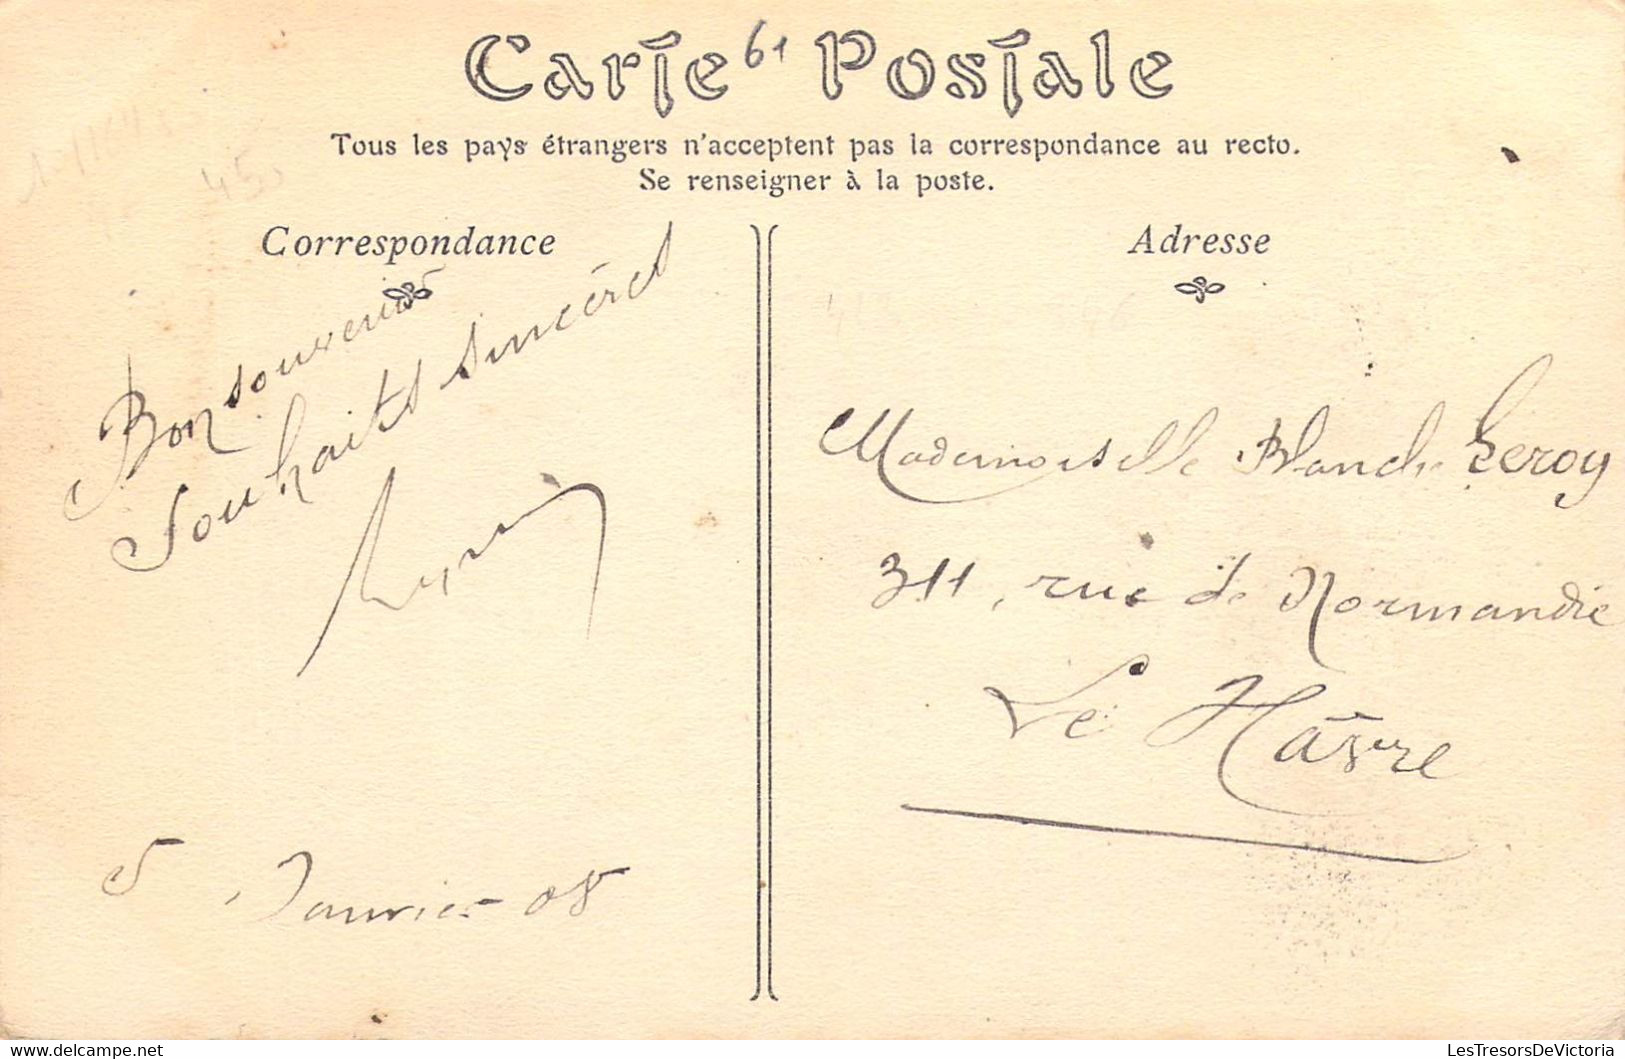 Carte Postale
61
Tous les pays étrangers n'acceptent pas la correspondance au recto.
Se renseigner à la poste.
450
Correspondance
Bon souvenir
Souhaits sincères
5 Janvier 08
Adresse
Mademoiselle Blanche Leroy
311, rue de Normandie
Le Hâvre
LesTresorsDeVictoria